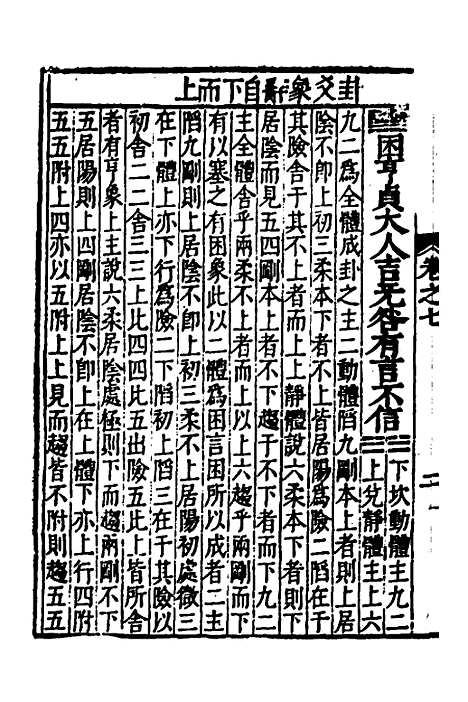 卷之七
卦爻彖辭自下而上
䷮困亨貞大人吉无咎有言不信
☵下坎動體主九二
☱上兌靜體主上六
九二爲全體成卦之主二動體陷九剛本上者則上居
陰不卽上初三柔本下者不上皆居陽爲險二陷在于
其險舍于其不上者而上上靜體說六柔本下者則下
居陰而見五四剛本上者不下趨于不下者而下九二
主全體舍乎兩柔不上者而上以上六趨乎兩剛而下
有以塞之有困象此以二體爲困言困所以成者二主
陷九剛則上居陰不卽上初三柔不上居陽初處微三
在下體上亦下行爲險二陷初上陷三在于其險以
初舍二二舍三三比四四比五出險五比上皆所舍
者有亨象上主說六柔居陰處極則下而趨兩剛不下
五居陽則上四剛居陰不卽上在上體下亦上行四附
五五附上四亦以五五附上上見而趨皆不附則趨五五